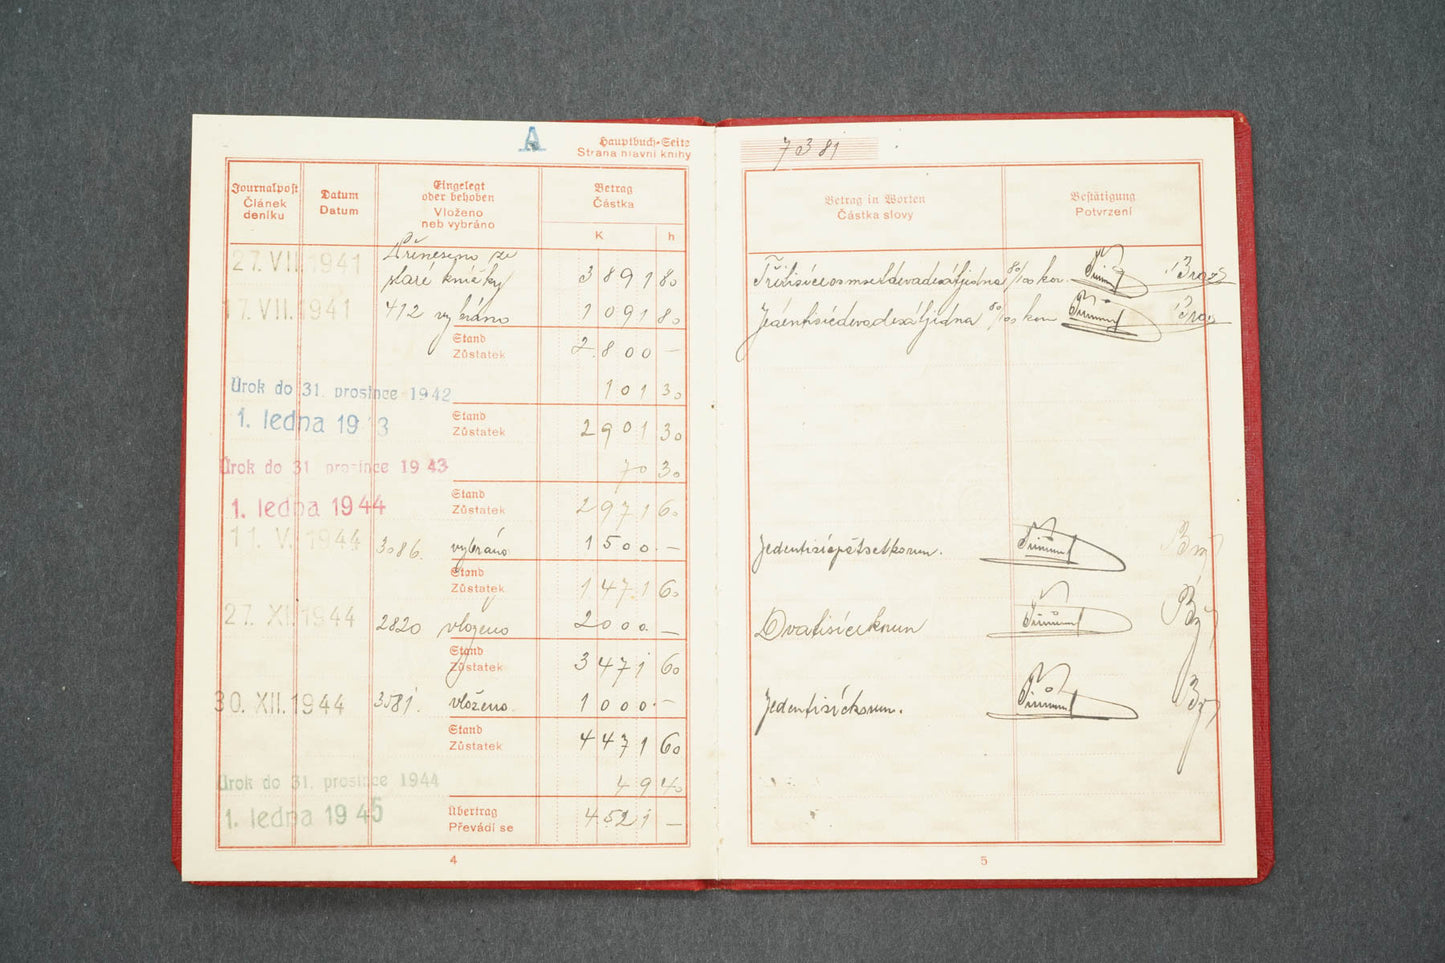 A
Hauptbuch-Seite
Strana hlavní knihy
Journalpost
Článek
deníku
Datum
Datum
Eingelegt
oder behoben
Vloženo
neb vybráno
Betrag
Částka
K h
27. VII. 1941 Přineseno ze
staré knížky 3891 80
17. VII. 1941 412 vybráno 1091 80
Stand
Zůstatek 2800 —
Úrok do 31. prosince 1942 101 30
1. ledna 19 3
Stand
Zůstatek 2901 30
Úrok do 31. prosince 1943 70 30
1. ledna 1944
Stand
Zůstatek 2971 60
11. V. 1944 3086. vybráno 1500. —
Stand
Zůstatek 1471 60
27. XI. 1944 2820 vloženo 2000. —
Stand
Zůstatek 3471 60
30. XII. 1944 3581. vloženo 1000. —
Stand
Zůstatek 4471 60
Úrok do 31. prosince 1944 49 40
1. ledna 1945
Übertrag
Převádí se 4521 —
4
7381
Betrag in Worten
Částka slovy
Bestätigung
Potvrzení
Třitisíceosmsetdevadesátjedna 80/100 kor.
Jedentisícdevadesátjedna 80/100 kor
Jedentisícpětsetkorun.
Dvatisícekorun
Jedentisíckorun.
5